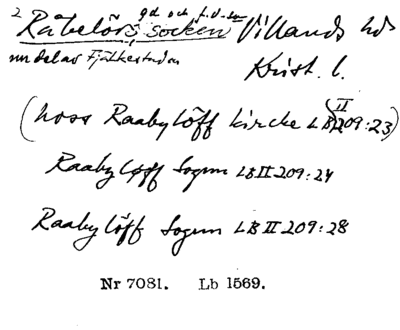 2 Råbelövs socken Villands hd
gd och f.d. sn
nu del av Fjälkestad sn
Krist. l.
(hoss Raabylöff kirche LB II 209:23)
Raabyløff Sogen LB II 209:24
Raabylöff Sogen LB II 209:28
Nr 7081. Lb 1569.